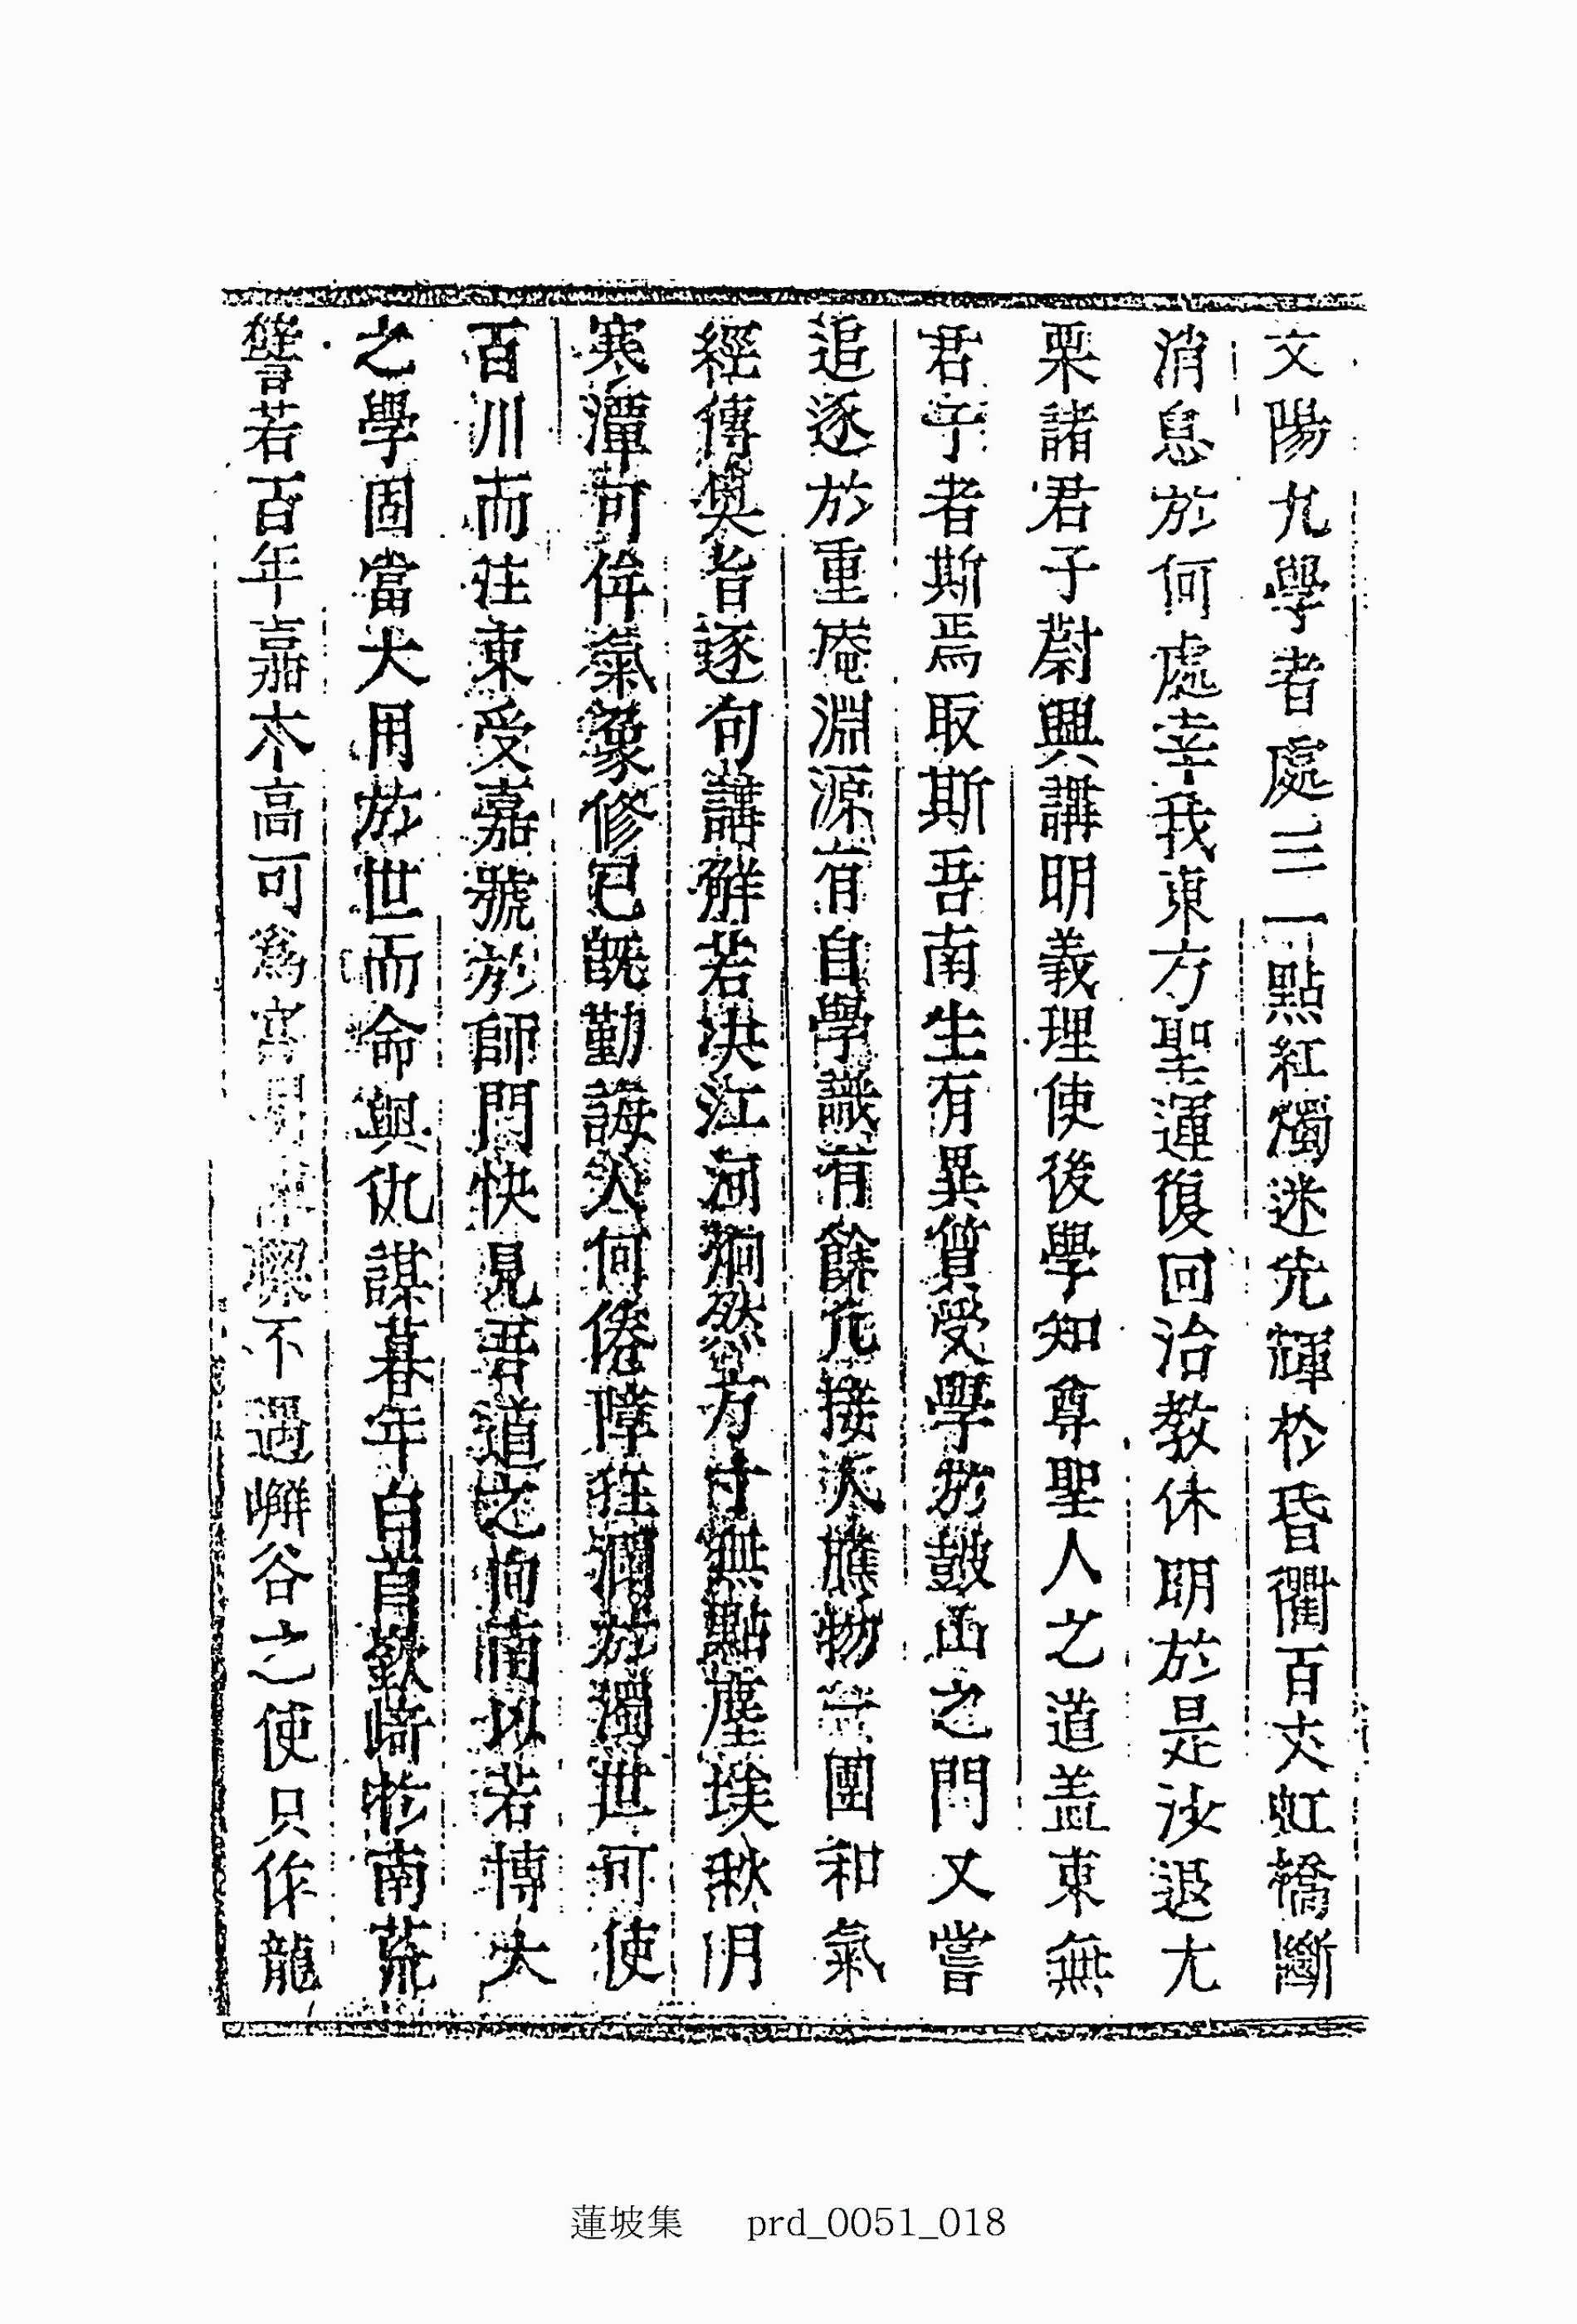 文陽九學者處三一點紅燭迷先輝於昏衢百丈虹橋斷
消息於何處幸我東方聖運復回治教休明於是沙退尤
栗諸君子蔚興講明義理使後學知尊聖人之道盖東無
君子者斯焉取斯吾南生有異質受學於鼓山之門又嘗
追逐於重庵淵源有自學識有餘凡接人應物一團和氣
經傳奧旨逐句講解若决江河炯然方寸無點塵埃秋月
寒潭可侔氣像修己既勤誨人何倦障狂瀾於濁世可使
百川而往東受嘉號於師門快見吾道之向南以若博大
之學固當大用於世而命與仇謀暮年白首欽崎於南荒
譬若百年嘉木高可爲不遇嶰谷之使只作龍
蓮坡集 prd_0051_018